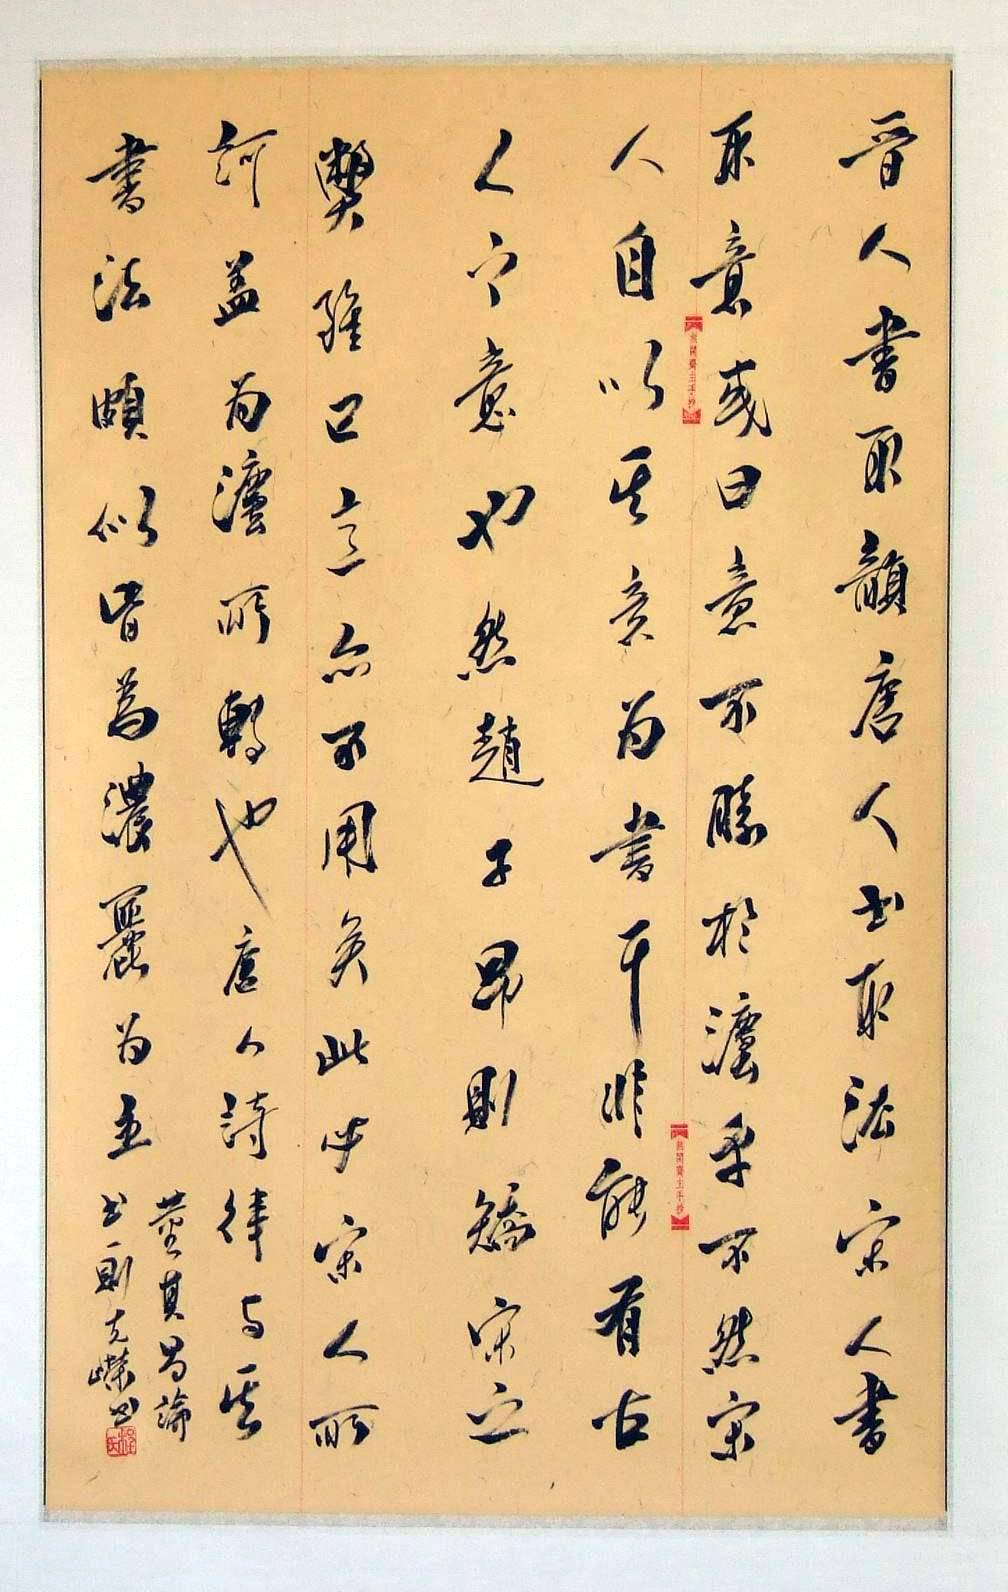 晋人書取韻唐人书取法宋人書
取意或曰意不勝於灋乎不然宋
人自以其意为書耳非能有古
人之意也然趙子昂則矯宋之
弊雖己意亦不用矣此必宋人所
訶盖为灋所轉也唐人詩律与其
書法頗似皆為濃麗为主
董其昌論
书一則克嶸书